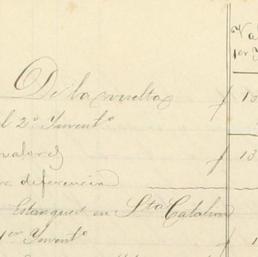 Val
1er
De la vuelta f 13
l 2º Invent.º
valores f 13
diferencia
Estanques en Sta Catalina
1er Invent.º f 1